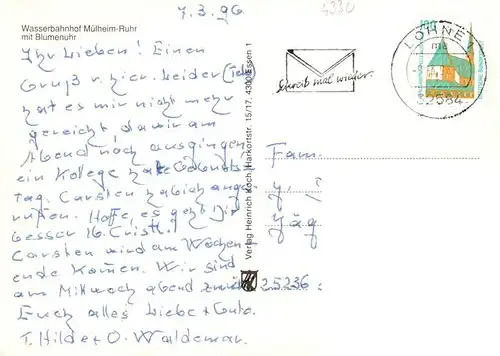 7.3.96
4330
Wasserbahnhof Mülheim-Ruhr
mit Blumenuhr
Ihr Lieben! Einen
Gruß v. hier. Leider (Tel)
hat es mir nicht mehr
gereicht da wir am
Abend noch ausgingen,
ein Kollege hatte Geburts
Tag. Carsten hab ich ange-
rufen. Hoffe, es geht Dir
besser lb.
Carsten wird am Wochen-
ende kommen. Wir sind
am Mittwoch abend
Euch alles Liebe + Gute.
T. Hilde + O. Waldemar.
Verlag Heinrich Koch, Harkortstr. 15/17, 4300 Essen 1
Schreib mal wieder.
LOHNE
32584
100
Fam.
Jäg
25236